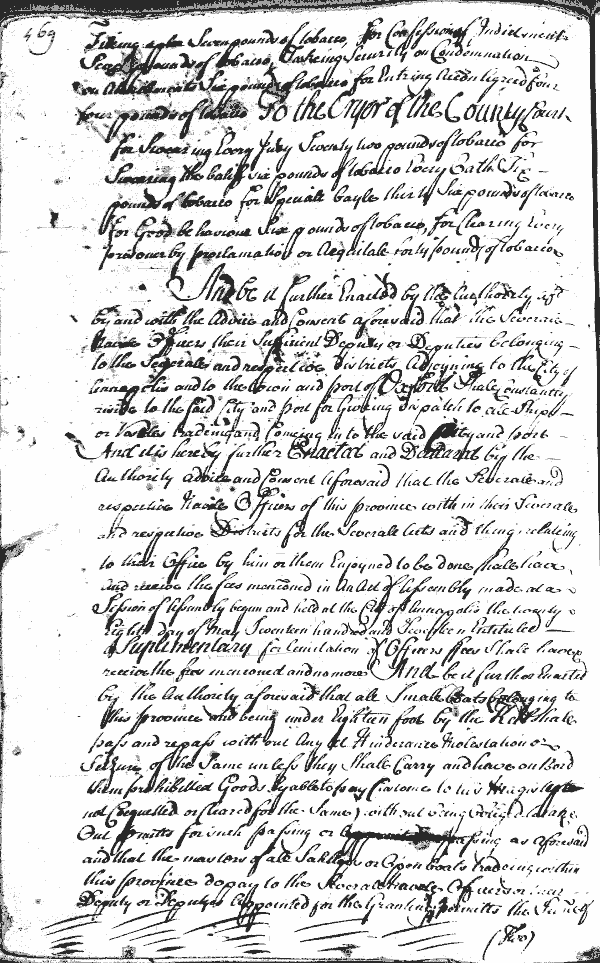 469
Seven pounds of tobacco, for Confession of Indictment
pounds of tobacco, Takeing Security on Condemnation
on Attachments Six pounds of tobacco for Entring four
four pounds of tobacco To the Cryor of the County Court
for Swearing Every Jury Seventy two pounds of tobacco for
Swearing the Six pounds of tobacco Every Oath Six
pounds of tobacco for Speciale bayle thirty Six pounds of tobacco
for Good behaviour Six pounds of tobacco, for Clearing Every
prisoner by proclamation or forty pounds of tobacco
And be it further Enacted by the Authority afd
by and with the Advice and Consent aforesaid that the Severale
Navale Officers their Sufficient Deputy or Deputies belonging
to the Severale and respective Districts Adjoyning to the City of
Annapolis and to the town and port of Oxford Shale Constantly
reside to the said City and port for Giveing Dispatch to ale Ships
or Vessles tradeing and Comeing in to the said City and port
And it is hereby further Enacted and Declared by the
Authority advice and Consent aforesaid that the Severale and
respective Navale Officers of this province with in their Severale
and respective Districts for the Severale Acts and things relateing
to their Office by him or them Enjoyned to be done Shale have
and receive the fees mencioned in An Act of Assembly made at a
Session of Assembly begun and held at the City of Annapolis the twenty
Eighth day of May Seventeen hundred and Entituled
a Suplimentary for limitation of Officers fees Shale have
receive the fees mencioned and no more And be it further Enacted
by the Authority aforesaid that ale Smale boats belonging to
this province and being under Eighteen foot by the Shale
pass and repass with out Any Let Hinderance Molestation or
Seizure of the Same unless they Shale Carry and have on Bord
them prohibitted Goods lyable to pay Customes to his Majestie
not or Cleared for the Same) with out being
Out permitts for such passing or passing as aforesaid
and that the masters of ale or Open boats tradeing within
this province do pay to the Severale Navale Officers or their
Deputy or Deputyes appointed for the Granting permitts the Sum of
(Two)